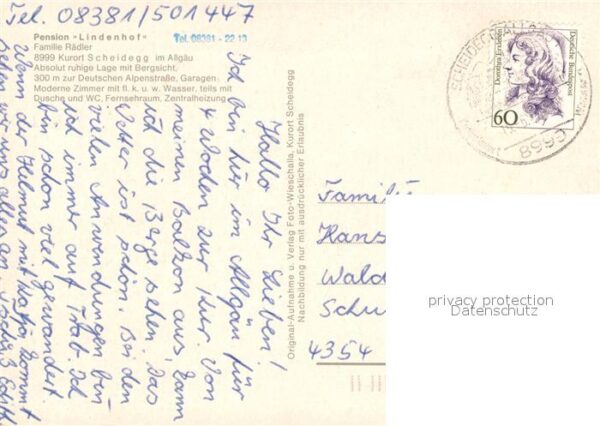 Tel. 08381/501447
Pension »Lindenhof«
Familie Rädler
8999 Kurort Scheidegg im Allgäu
Absolut ruhige Lage mit Bergsicht.
300 m zur Deutschen Alpenstraße, Garagen.
Moderne Zimmer mit fl. k. u. w. Wasser, teils mit
Dusche und WC, Fernsehraum, Zentralheizung.
Tel. 08381 - 22 13
Hallo Ihr Lieben!
Ich bin hier im Allgäu für
4 Wochen zur Kur. Von
meinen Balkon aus, kann
ich die Berge sehen, das
Wetter ist schön. Bei den
vielen Anwendungen bin
ich immer auf Trab. Ich
bin schon viel gewandert.
Wenn der Helmut mit Katja kommt
sehen wir uns alles an. Edith
Original-Aufnahme u. Verlag Foto-Wieschalla, Kurort Scheidegg
Nachbildung nur mit ausdrücklicher Erlaubnis
Familie
Hans
Wald
Schu
4354
Dorothea Erxleben
Deutsche Bundespost
60
SCHEIDEGG, ALLGÄU
8999
privacy protection
Datenschutz